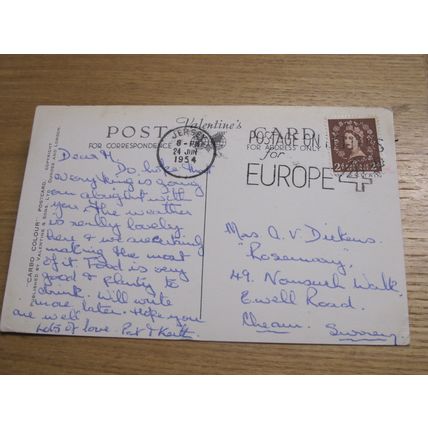 POST CARD
Valentine's
FOR CORRESPONDENCE
FOR ADDRESS ONLY
JERSEY
8 - PM
24 JUN
1954
POSTAGE ON
for
EUROPE 4
2½ 2½
"CARBO COLOUR" POSTCARD.
PUBLISHED BY VALENTINE & SONS, LTD., DUNDEE AND LONDON.
Dear M,
Do hope
everything is going
on alright with
you. The weather
is really lovely
here & we are certainly
making the most
of it. Food is very
good & plenty to
drink. Will write
more later. Hope you
are well.
Lots of love. Pat & Keith
Mrs. A. V. Dickens
"Rosemary",
49. Nonsuch Walk,
Ewell Road,
Cheam. Surrey.